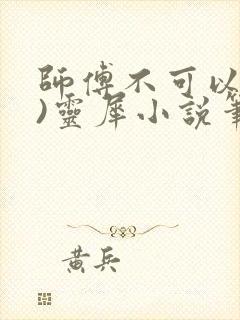 師傅不可以
)靈犀小說筆
黃兵